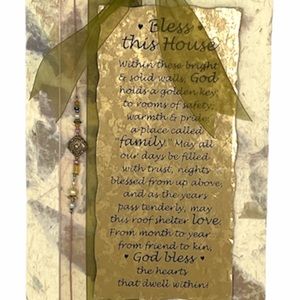 ♥ Bless ♥
this House
Within these bright
& solid walls, God
holds a golden key
to rooms of safety,
warmth & pride;
a place called
family. May all
our days be filled
with trust, nights
blessed from up above,
and as the years
pass tenderly, may
this roof shelter love.
From month to year
from friend to kin,
♥ God bless ♥
the hearts
that dwell within!